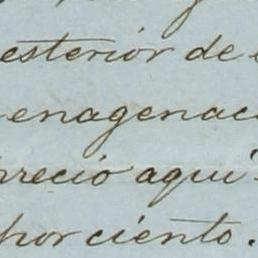 esterior de
enagenac
precio aqui
por ciento.